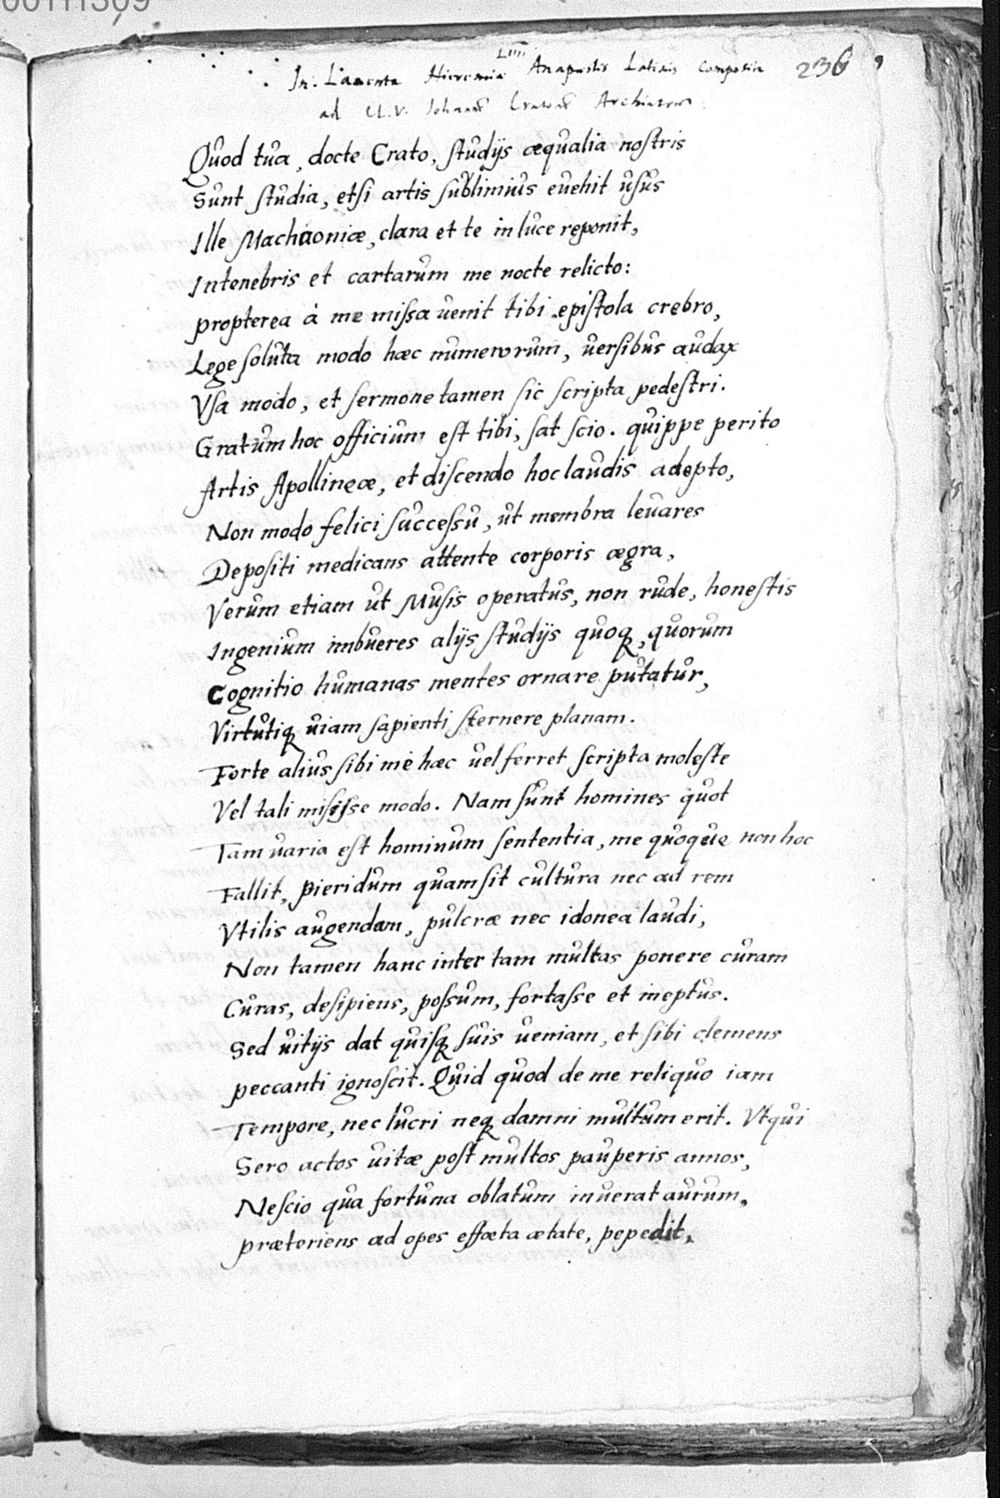 00111309
LIIII
In Lamenta Hieremiæ Anapæstis Latinis composita 236
ad Cl. V. Johann Cratonē Archiatrum
Quod tua, docte Crato, studijs æqualia nostris
Sunt studia, etsi artis sublimius euehit usus
Ille Machaoniæ, clara et te in luce reponit,
In tenebris et cartarum me nocte relicto:
propterea à me missa uenit tibi epistola crebro,
Lege soluta modo hæc numerorum, uersibus audax
Vsa modo, et sermone tamen sic scripta pedestri.
Gratum hoc officium est tibi, sat scio. quippe perito
Artis Apollineæ, et discendo hoc laudis adepto,
Non modo felici successu, ut membra leuares
Depositi medicans attente corporis ægra,
Verum etiam ut Musis operatus, non rude, honestis
Ingenium imbueres alijs studijs quoq, quorum
Cognitio humanas mentes ornare putatur,
Virtutiq uiam sapienti sternere planam.
Forte alius sibi me hæc uel ferret scripta moleste
Vel tali misisse modo. Nam sunt homines quot
Tam uaria est hominum sententia, me quoque non hoc
Fallit, Pieridum quam sit cultura nec ad rem
Vtilis augendam, pulcræ nec idonea laudi,
Non tamen hanc inter tam multas ponere curam
Curas, desipiens, possum, fortasse et ineptus.
Sed uitijs dat quisq suis ueniam, et sibi clemens
peccanti ignoscit. Quid quod de me reliquo iam
Tempore, nec lucri neq damni multum erit. Vt qui
Sero actos uitæ post multos pauperis annos,
Nescio qua fortuna oblatum inuerat aurum,
præteriens ad opes effœta ætate, pepedit.